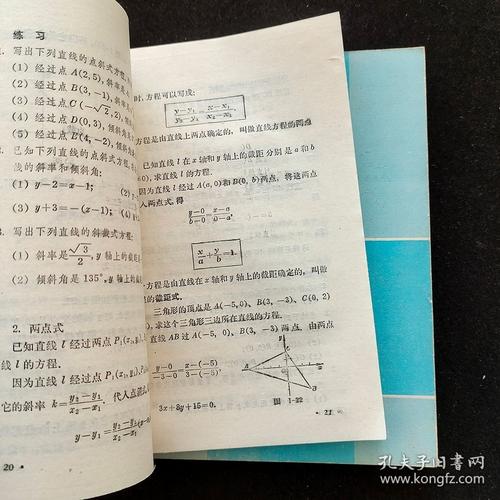 练习
写出下列直线的点斜式方程
(1) 经过点 A(2,5),斜率是
(2) 经过点 B(3,-1),斜率
(3) 经过点 C(-√2,2),
(4) 经过点 D(0,3),倾斜角
(5) 经过点 E(4,-2),倾斜
已知下列直线的点斜式方程
线的斜率和倾斜角:
(1) y-2=x-1;
(3) y+3=-(x-1); (4)
写出下列直线的斜截式方程:
(1) 斜率是√3/2, y轴上的截距
(2) 倾斜角是135°, y轴上的
2. 两点式
已知直线 l 经过两点 P₁(x₁,
线 l 的方程.
因为直线 l 经过点 P₁(x₁,
它的斜率 k=(y₂-y₁)/(x₂-x₁). 代入点斜式,
y-y₁=(y₂-y₁)/(x₂-x₁)
20
时,方程可以写成:
(y-y₁)/(y₂-y₁)=(x-x₁)/(x₂-x₁).
方程是由直线上两点确定的, 叫做直线方程的两点
已知直线 l 在 x 轴和 y 轴上的截距分别是 a 和 b
0),求直线 l 的方程.
因为直线 l 经过 A(a, 0)和B(0, b)两点, 将这两点
入两点式,得
(y-0)/(b-0)=(x-a)/(0-a).
x/a+y/b=1.
方程是由直线在 x 轴和 y 轴上的截距确定的, 叫做
的截距式.
三角形的顶点是 A(-5,0)、B(3, -3)、C(0, 2)
求这个三角形三边所在直线的方程.
直线 AB 过 A(-5, 0)、B(3, -3)两点, 由两点
(y-0)/(-3-0)=(x-(-5))/(3-(-5)).
3x+8y+15=0.
A
B
图 1-22
21
孔夫子旧书网
www.kongfz.com